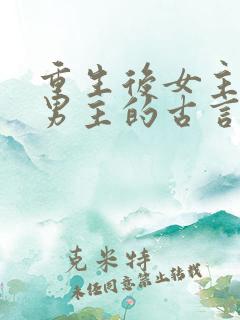 重生后女主
男主的古言
克米特
未经同意禁止转载